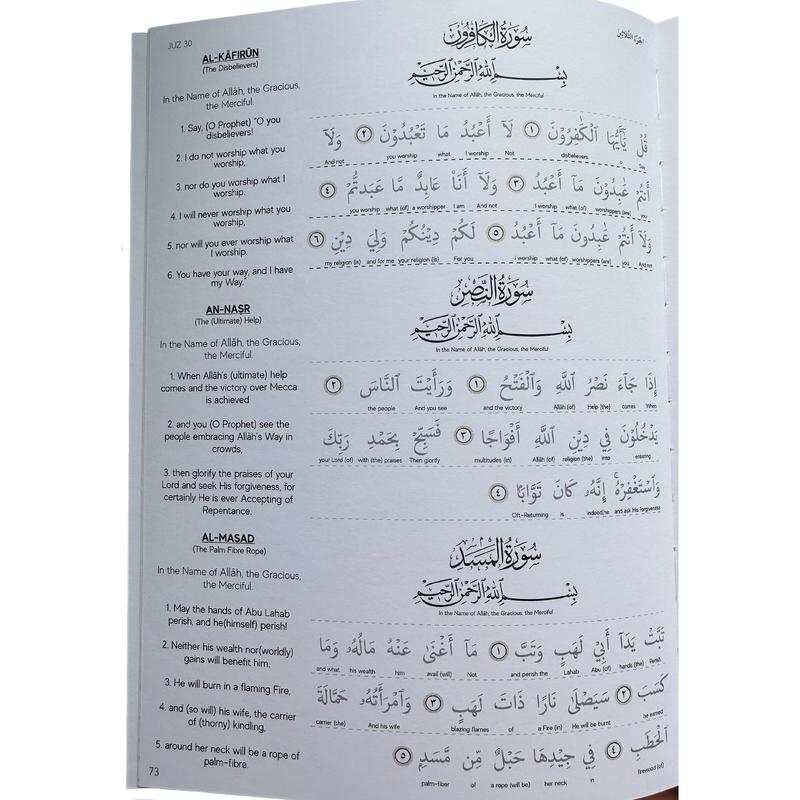 JUZ 30
الجزء الثلاثين
AL-KĀFIRŪN
(The Disbelievers)
In the Name of Allāh, the Gracious,
the Merciful.
1. Say, (O Prophet) "O you
disbelievers!
2. I do not worship what you
worship,
3. nor do you worship what I
worship.
4. I will never worship what you
worship,
5. nor will you ever worship what
I worship.
6. You have your way, and I have
my Way."
سُورَةُ الكَافِرُونَ
بِسْمِ ٱللَّهِ ٱلرَّحْمَٰنِ ٱلرَّحِيمِ
In the Name of Allāh, the Gracious, the Merciful
قُلْ يَٰٓأَيُّهَا ٱلْكَٰفِرُونَ ١ لَآ أَعْبُدُ مَا تَعْبُدُونَ ٢ وَلَآ
And not you worship what I worship Not disbelievers O Say
أَنتُمْ عَٰبِدُونَ مَآ أَعْبُدُ ٣ وَلَآ أَنَا۠ عَابِدٌ مَّا عَبَدتُّمْ ٤
you worship what (of) a worshipper I am And not I worship what (of) worshippers (are) you
وَلَآ أَنتُمْ عَٰبِدُونَ مَآ أَعْبُدُ ٥ لَكُمْ دِينُكُمْ وَلِيَ دِينِ ٦
my religion (is) and for me your religion (is) For you i worship what (of) worshippers (are) you And not
AN-NAṢR
(The (Ultimate) Help)
In the Name of Allāh, the Gracious,
the Merciful.
1. When Allāh's (ultimate) help
comes and the victory over Mecca
is achieved
2. and you (O Prophet) see the
people embracing Allāh's Way in
crowds,
3. then glorify the praises of your
Lord and seek His forgiveness, for
certainly He is ever Accepting of
Repentance.
سُورَةُ النَّصْرِ
بِسْمِ ٱللَّهِ ٱلرَّحْمَٰنِ ٱلرَّحِيمِ
In the Name of Allāh, the Gracious, the Merciful
إِذَا جَآءَ نَصْرُ ٱللَّهِ وَٱلْفَتْحُ ١ وَرَأَيْتَ ٱلنَّاسَ ٢
the people And you see and the victory Allāh (of) Help (the) comes When
يَدْخُلُونَ فِي دِينِ ٱللَّهِ أَفْوَاجًا ٣ فَسَبِّحْ بِحَمْدِ رَبِّكَ
your Lord (of) with (the) praises Then glorify multitudes (in) Allāh (of) religion (the) into entering
وَٱسْتَغْفِرْهُ ۚ إِنَّهُۥ كَانَ تَوَّابًۢا ٤
Oft-Returning is indeed,he and ask His forgiveness
AL-MASAD
(The Palm Fibre Rope)
In the Name of Allāh, the Gracious,
the Merciful.
1. May the hands of Abu Lahab
perish, and he(himself) perish!
2. Neither his wealth nor(worldly)
gains will benefit him.
3. He will burn in a flaming Fire,
4. and (so will) his wife, the carrier
of (thorny) kindling,
5. around her neck will be a rope of
palm-fibre.
سُورَةُ المَسَدِ
بِسْمِ ٱللَّهِ ٱلرَّحْمَٰنِ ٱلرَّحِيمِ
In the Name of Allāh, the Gracious, the Merciful
تَبَّتْ يَدَآ أَبِي لَهَبٍ وَتَبَّ ١ مَآ أَغْنَىٰ عَنْهُ مَالُهُۥ وَمَا
and what his wealth him avail (will) Not and perish the Lahab Abu (of) hands (the) Perish
كَسَبَ ٢ سَيَصْلَىٰ نَارًا ذَاتَ لَهَبٍ ٣ وَٱمْرَأَتُهُۥ حَمَّالَةَ
carrier (the) And his wife blazing flames of a Fire (in) He will be burnt he earned
ٱلْحَطَبِ ٤ فِي جِيدِهَا حَبْلٌ مِّن مَّسَدٍۭ ٥
palm-fiber of a rope (will be) her neck in firewood (of)
73